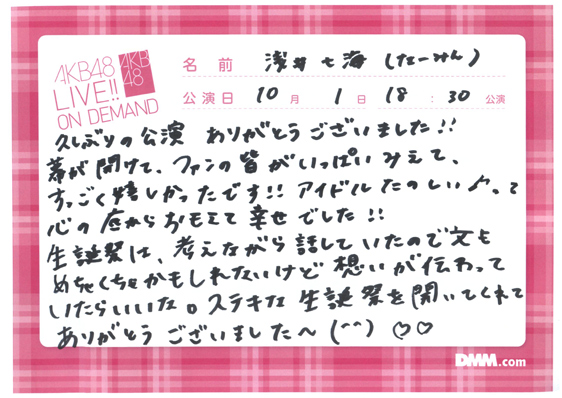 AKB48
LIVE!!
ON DEMAND
AKB
48
名前 浅井七海(なーみん)
公演日 10月 1日 18:30公演
久しぶりの公演 ありがとうございました!!
幕が開けて、ファンの皆がいっぱいみえて、
すっごく嬉しかったです!! アイドルたのしい♪って
心の底からおもえて幸せでした!!
生誕祭は、考えながら話していたので文も
めちゃくちゃかもしれないけど想いが伝わって
いたらいいな。ステキな生誕祭を開いてくれて
ありがとうございました〜(^^)♡♡
DMM.com